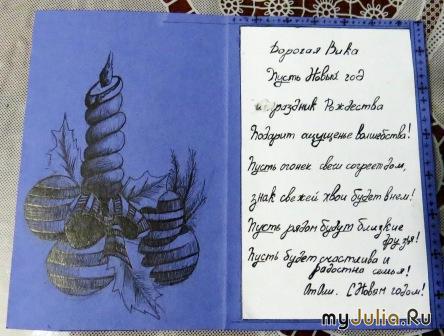 Дорогая Вика
Пусть Новый год
и праздник Рождества
Подарит ощущенье волшебства!
Пусть огонек свечи согреет дом,
знак свежей хвои будет в нем!
Пусть рядом будут близкие
друзья!
Пусть будет счастлива и
радостна семья!
От Оли. С Новым годом!
myJulia.Ru